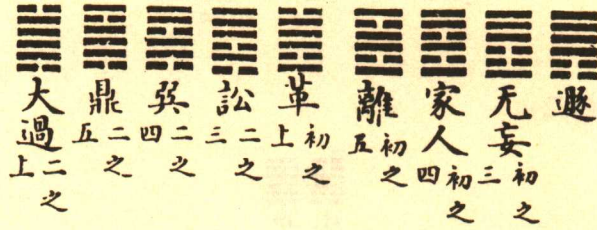 遯
无妄初之三
家人初之四
離初之五
革初之上
訟二之三
巽二之四
鼎二之五
大過二之上